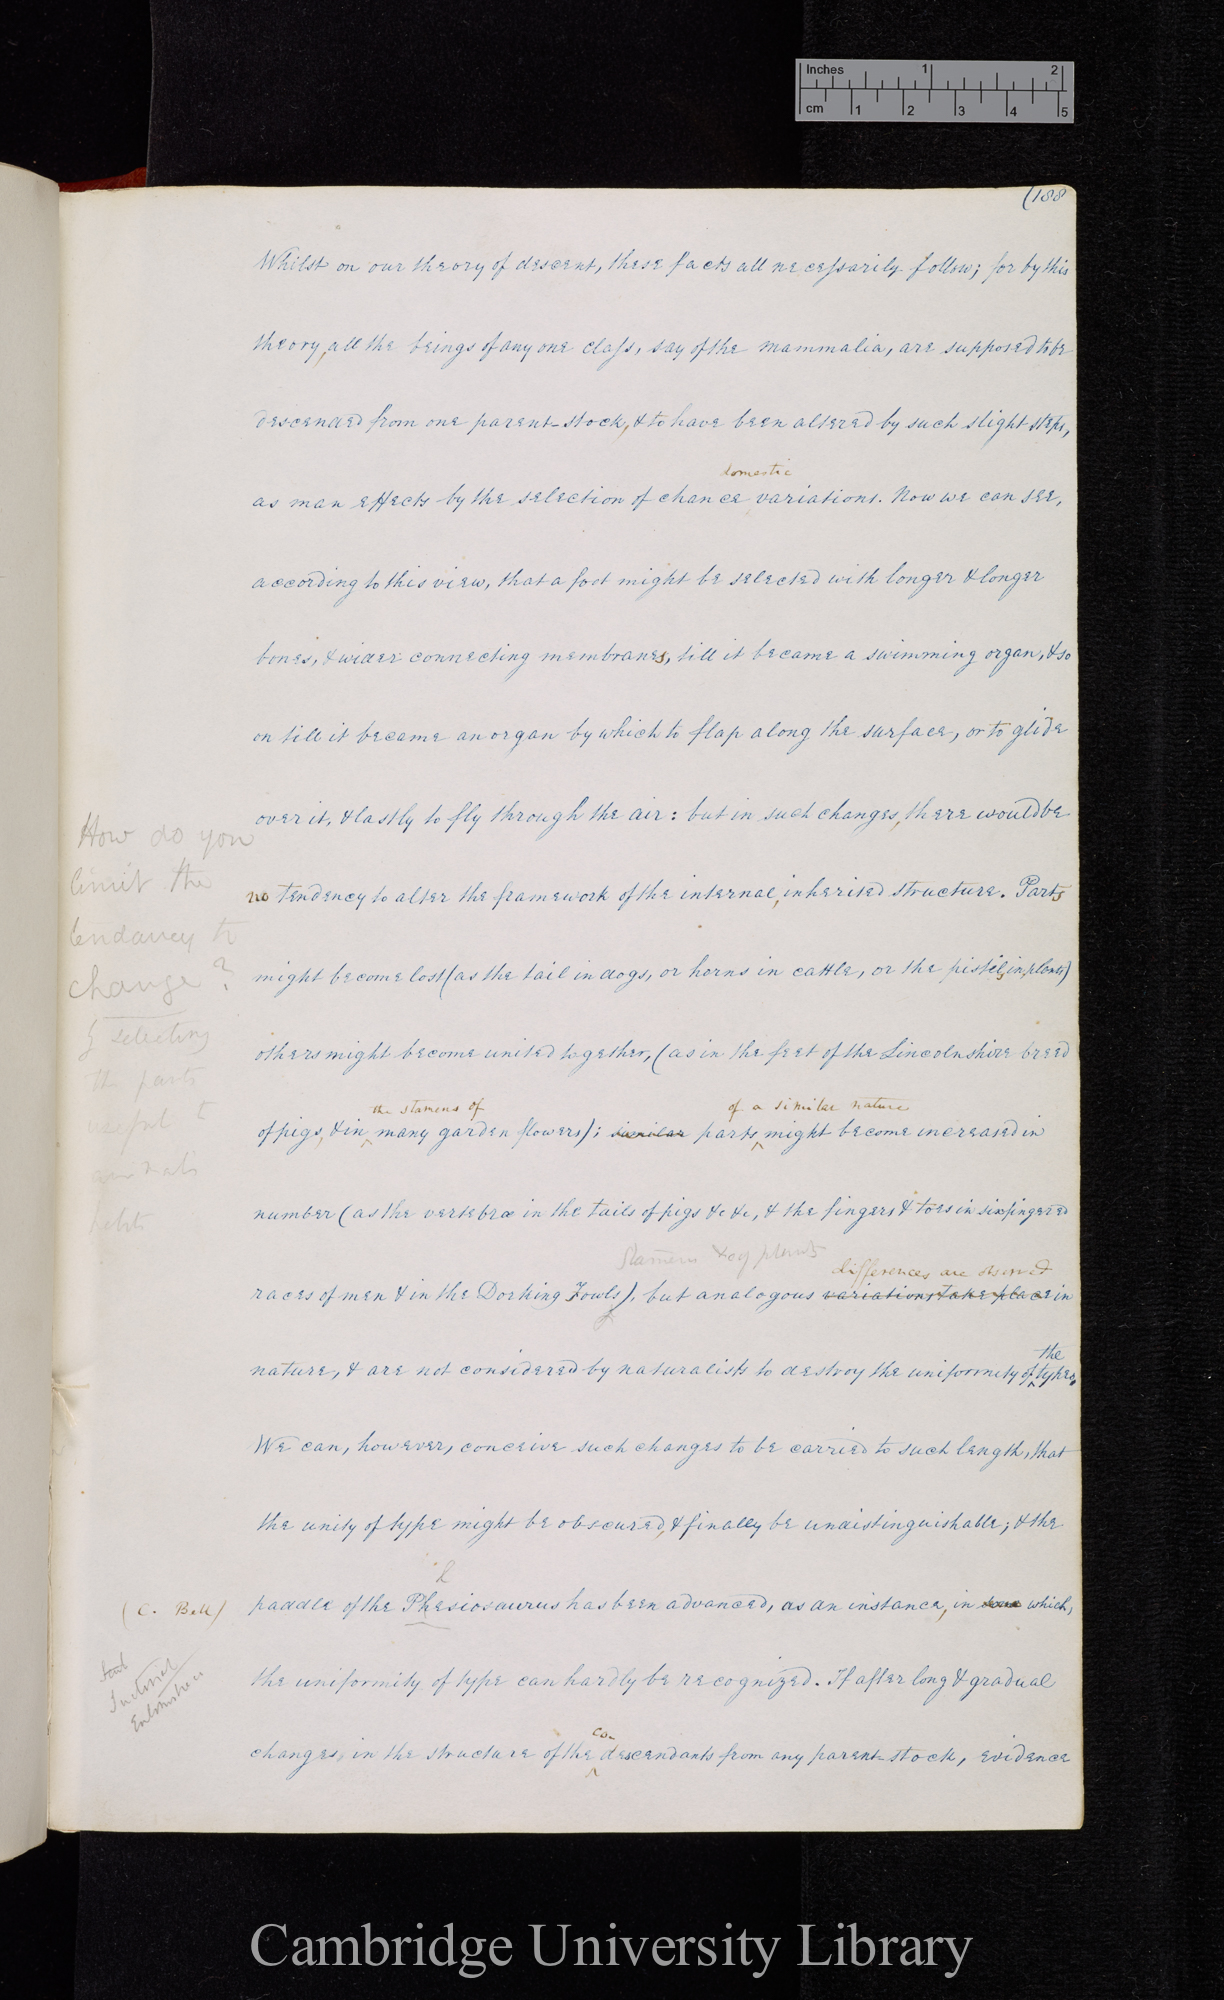 Inches 1 2
cm 1 2 3 4 5
(188
Whilst on our theory of descent, these facts all necessarily follow; for by this
theory, all the beings of any one class, say of the mammalia, are supposed to be
descended from one parent-stock, & to have been altered by such slight steps,
domestic
as man effects by the selection of chance variations. Now we can see,
according to this view, that a foot might be selected with longer & longer
bones, & wider connecting membranes, till it became a swimming organ, & so
on till it became an organ by which to flap along the surface, or to glide
over it, & lastly to fly through the air: but in such changes, there would be
no tendency to alter the framework of the internal, inherited structure. Parts
might become lost (as the tail in dogs, or horns in cattle, or the pistils in plants)
others might become united together, (as in the feet of the Lincolnshire breed
the stamens of
of a similar nature
of pigs, & in many garden flowers); similar parts might become increased in
number (as the vertebræ in the tails of pigs &c &c, & the fingers & toes in sixfingered
Stamens &c of plants
differences are observed
races of men & in the Dorking Fowls), but analogous variations take place in
the
nature, & are not considered by naturalists to destroy the uniformity of types.
We can, however, conceive such changes to be carried to such length, that
the unity of type might be obscured, & finally be undistinguishable; & the
l
paddle of the Phesiosaurus has been advanced, as an instance, in which,
the uniformity of type can hardly be recognized. If after long & gradual
co-
changes in the structure of the descendants from any parent-stock, evidence
How do you
limit the
tendancy to
change?
selecting
the parts
useful t
animals
habits
(C. Bell)
Cambridge University Library